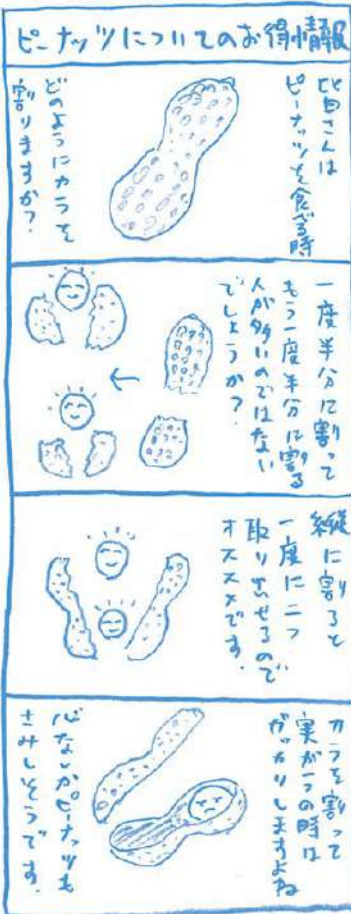 ピーナッツについてのお得情報
皆さんは
ピーナッツを食べる時
どのようにカラを
割りますか？
一度半分に割って
もう一度半分に割る
人が多いのではない
でしょうか？
縦に割ると
一度に二つ
取り出せるので
オススメです。
カラを割って
実が一つの時は
ガッカリしますよね
心なしかピーナッツも
さみしそうです。